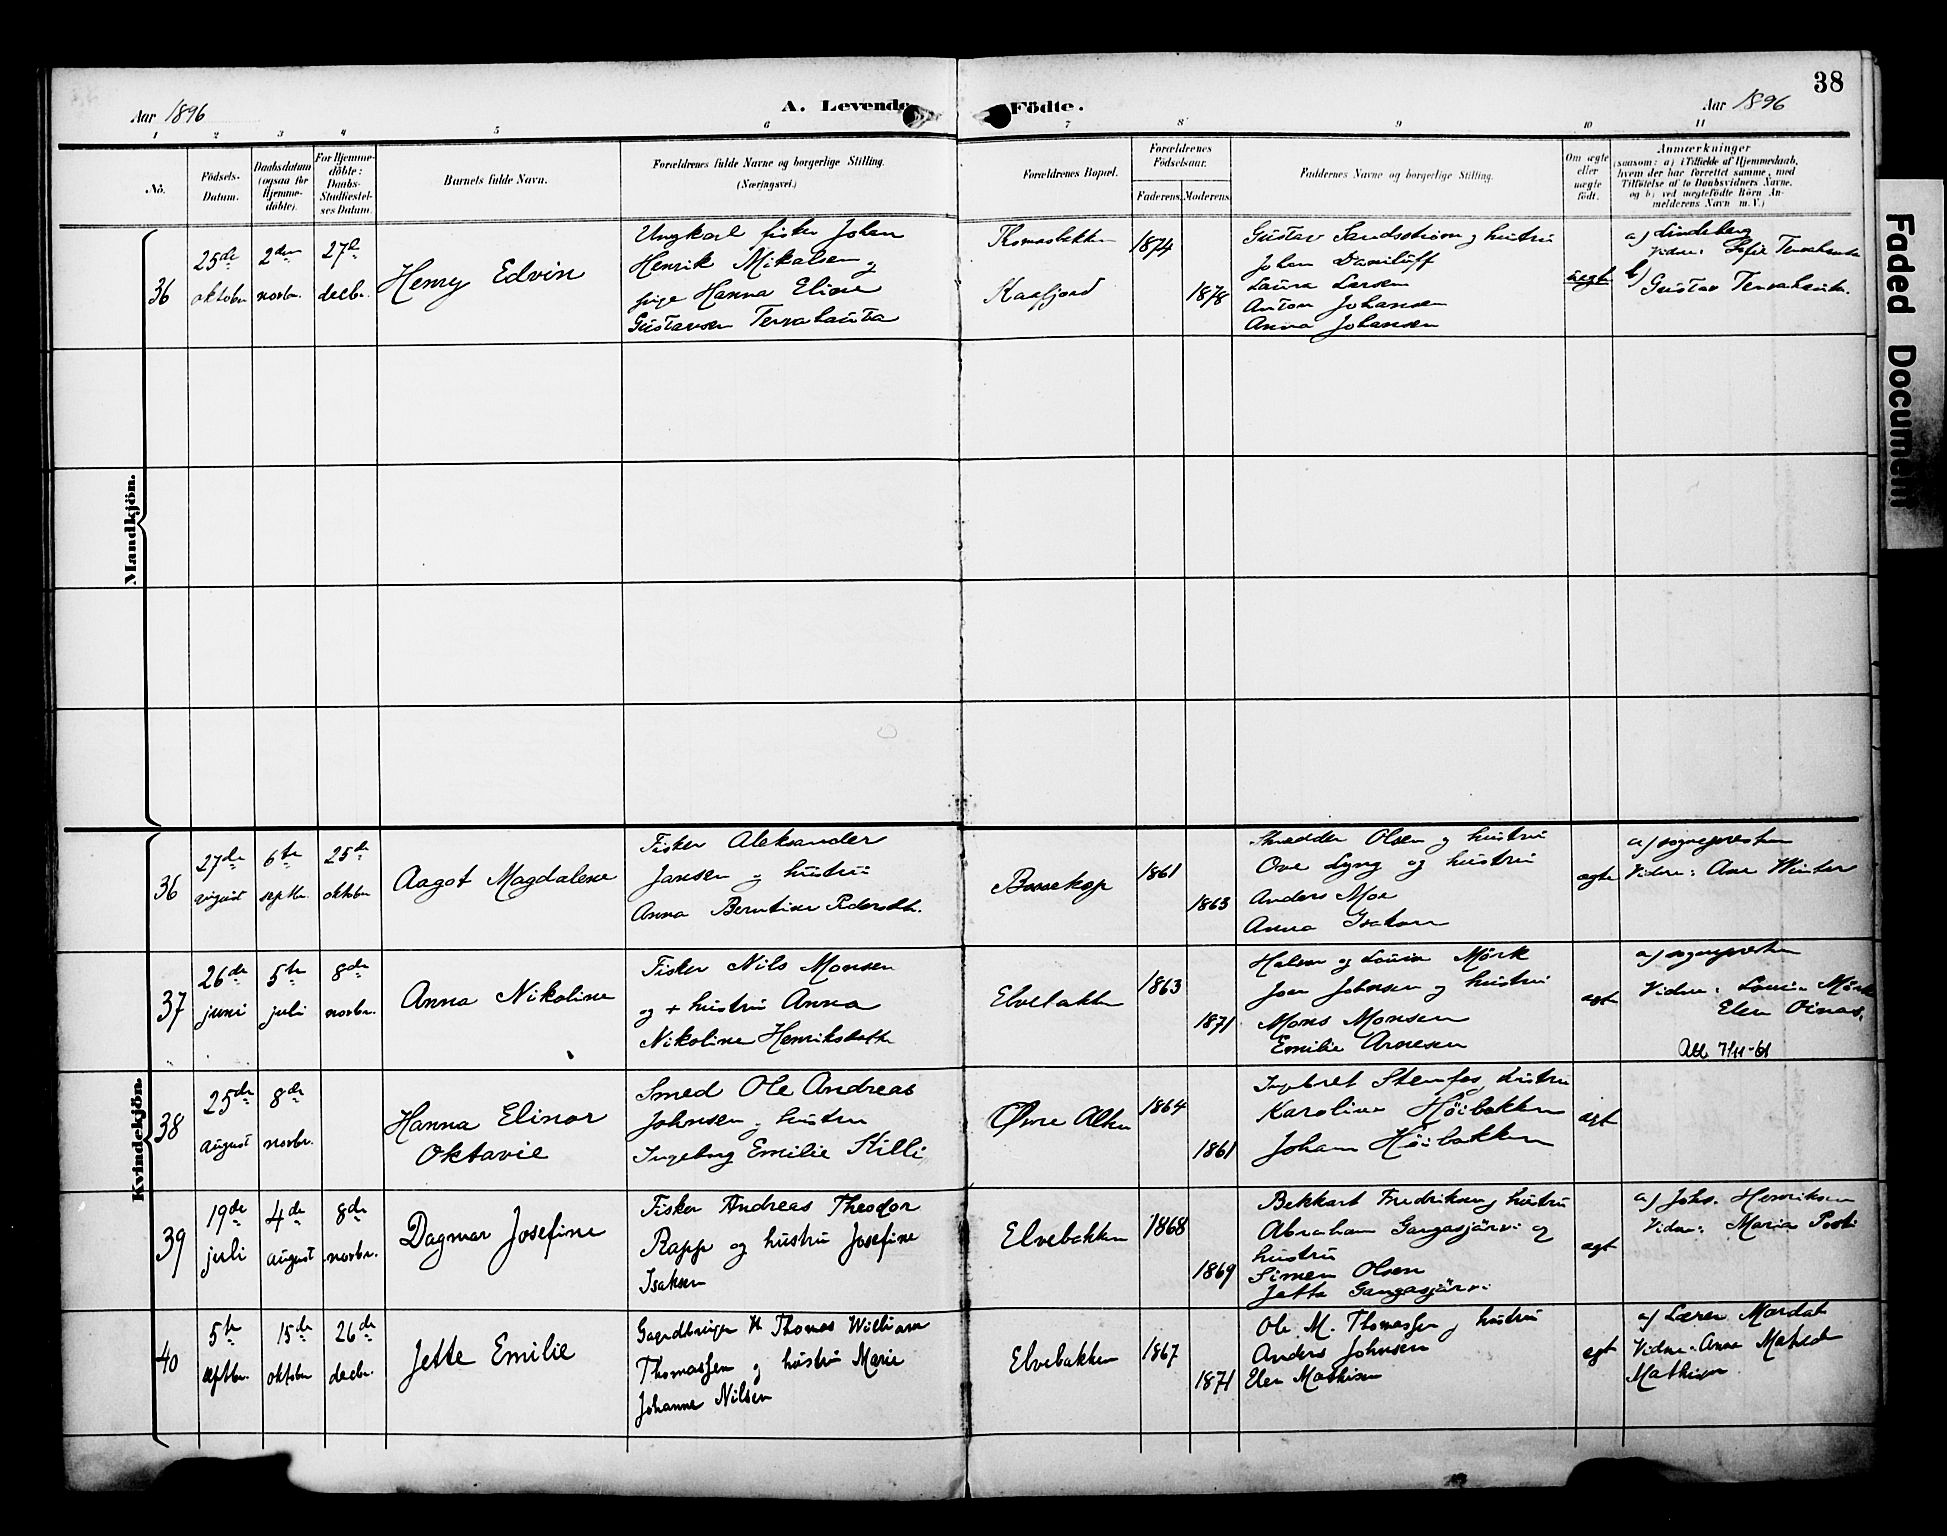 38
Aar 1896
A. Levende Födte.
Aar 1896
1 2 3 4 5 6 7 8 9 10 11
No.
Födsels-
Datum.
Daabsdatum
(ogsaa for
Hjemme-
döbte).
For Hjemme-
döbte:
Daabs-
Stadfæstel-
ses Datum.
Barnets fulde Navn.
Forældrenes fulde Navne og borgerlige Stilling.
(Næringsvei.)
Forældrenes Bopæl.
Forældrenes
Födselsaar.
Faderens.
Moderens.
Faddernes Navne og borgerlige Stilling.
Om ægte
eller
uægte
født.
Anmærkninger
(saasom: a) i Tilfælde af Hjemmedaab,
hvem der har forrettet samme, med
Tilföielse af to Daabsvidners Navne,
og b) ved uegtefödte Börn An-
melderens Navn m. V.)
Mandkjön.
36
25de
oktober
2den
novbr.
27de
decbr.
Henry Edvin
Ungkarl fisker Johan
Henrik Mikalsen og
pige Hanna Eline
Gustavsen Tervahauta
Kaafjord
1874
1878
Gustav Sandstrøm og hustru
Johan Daniluff
Laura Larsen
Anton Johansen
Anna Johansen
uegte
a) Lindeberg
Vidne: Sofie Tervahauta
b) Gustav Tervahauta.
Kvindekjön.
36
27de
august
6te
septbr.
25de
oktober
Aagot Magdalene
Fisker Aleksander
Jansen og hustru
Anna Berntine Pedersdtr.
Bossekop
1861
1863
Skrædder Olsen og hustru
Ove Lyng og hustru
Anders Moe
Anna Isaksen
egte
a) sognepresten
Vidne: Ane Winter
37
26de
juni
5te
juli
8de
novbr.
Anna Nikoline
Fisker Nils Monsen
og + hustru Anna
Nikoline Henriksdatter
Elvebakken
1863
1871
og Louise Mørk
Johnsen og hustru
Mons Monsen
Emilie Arnesen
egte
a) sognepresten
Vidne: Louise Mørk
Elen Oinas.
Att 7/11-61
38
25de
august
8de
novbr.
Hanna Elinor
Oktavie
Smed Ole Andreas
Johnsen og hustru
Ingeborg Emilie Killi
Øvre Alten
1864
1861
Ingebret Stenfos, hustru
Karoline Høibakken
Johan Høibakken
egte
39
19de
juli
4de
august
8de
novbr.
Dagmar Josefine
Fisker Andreas Theodor
Rapp og hustru Josefine
Isaksen
Elvebakken
1868
1869
Bekkart Fredriksen og hustru
Abraham Gangasjärvi og
hustru
Simen Olsen
Jetta Gangasjärvi
egte
a) Johs. Henriksen
Vidne: Maria Posti
40
5te
septbr.
15de
oktober
26de
decbr.
Jette Emilie
Gaardbruger H Thomas William
Thomassen og hustru Marie
Johanne Nilsen
Elvebakken
1867
1871
Ole M. Thomassen og hustru
Anders Johnsen
Elen Mathisen
egte
a) Lærer Mordal
Vidne: Anne
Mathisen
Faded Document